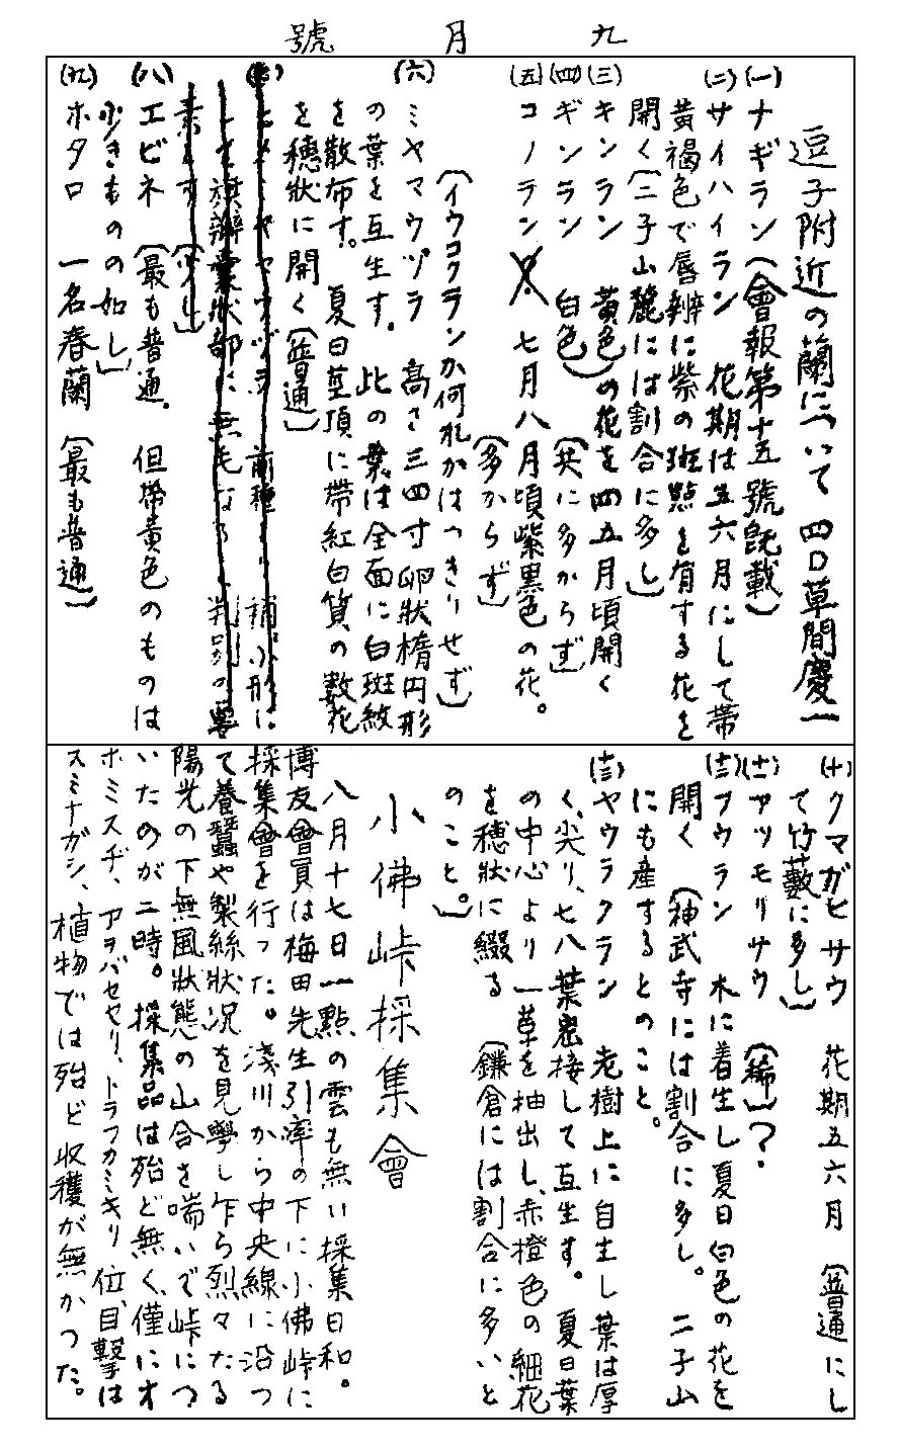 九月號
逗子附近の蘭について 四口草間慶一
(一)ナギラン(會報第十五號既載)
(二)サイハイラン 花期は五六月にして帯
黃褐色で唇辨に紫の斑點を有する花を
開く(二子山麓には割合に多し)
(三)キンラン 黃色)の花を四五月頃開く
(四)ギンラン 白色)(共に多からず)
(五)コノラン 七月八月頃紫黒色の花。
(多からず)
(イウコクランか何れかはつきりせず)
(六)ミヤマウヅラ 高さ三四寸卵狀楕円形
の葉を互生す。此の葉は全面に白斑紋
を散布す。夏日莖頂に帶紅白質の數花
を穗狀に開く(普通)
(八)エビネ(最も普通。但帶黃色のものは
少きものの如し)
(九)ホクロ 一名春蘭(最も普通)
(十)クマガヒサウ 花期五六月(普通にし
て竹藪に多し)
(十一)アツモリサウ(稀)?
(十二)フウラン 木に着生し夏日白色の花を
開く(神武寺には割合に多し。二子山
にも産するとのこと。
(十三)ヤウラクラン 老樹上に自生し葉は厚
く、尖り、七八葉密接して互生す。夏日葉
の中心より一草を抽出し、赤橙色の細花
を穗狀に綴る(鎌倉には割合に多いと
のこと。)
小佛峠採集會
八月十七日一點の雲も無い採集日和。
博友會員は梅田先生引率の下に小佛峠に
採集會を行つた。淺川から中央線に沿つ
て養蠶や製絲狀況を見學し乍ら烈々たる
陽光の下無風狀態の山合を喘いで峠につ
いたのが二時。採集品は殆ど無く、僅にオ
ホミスヂ、アヲバセセリ、トラフカミキリ位、目撃は
スミナガシ、植物では殆ど收穫が無かつた。